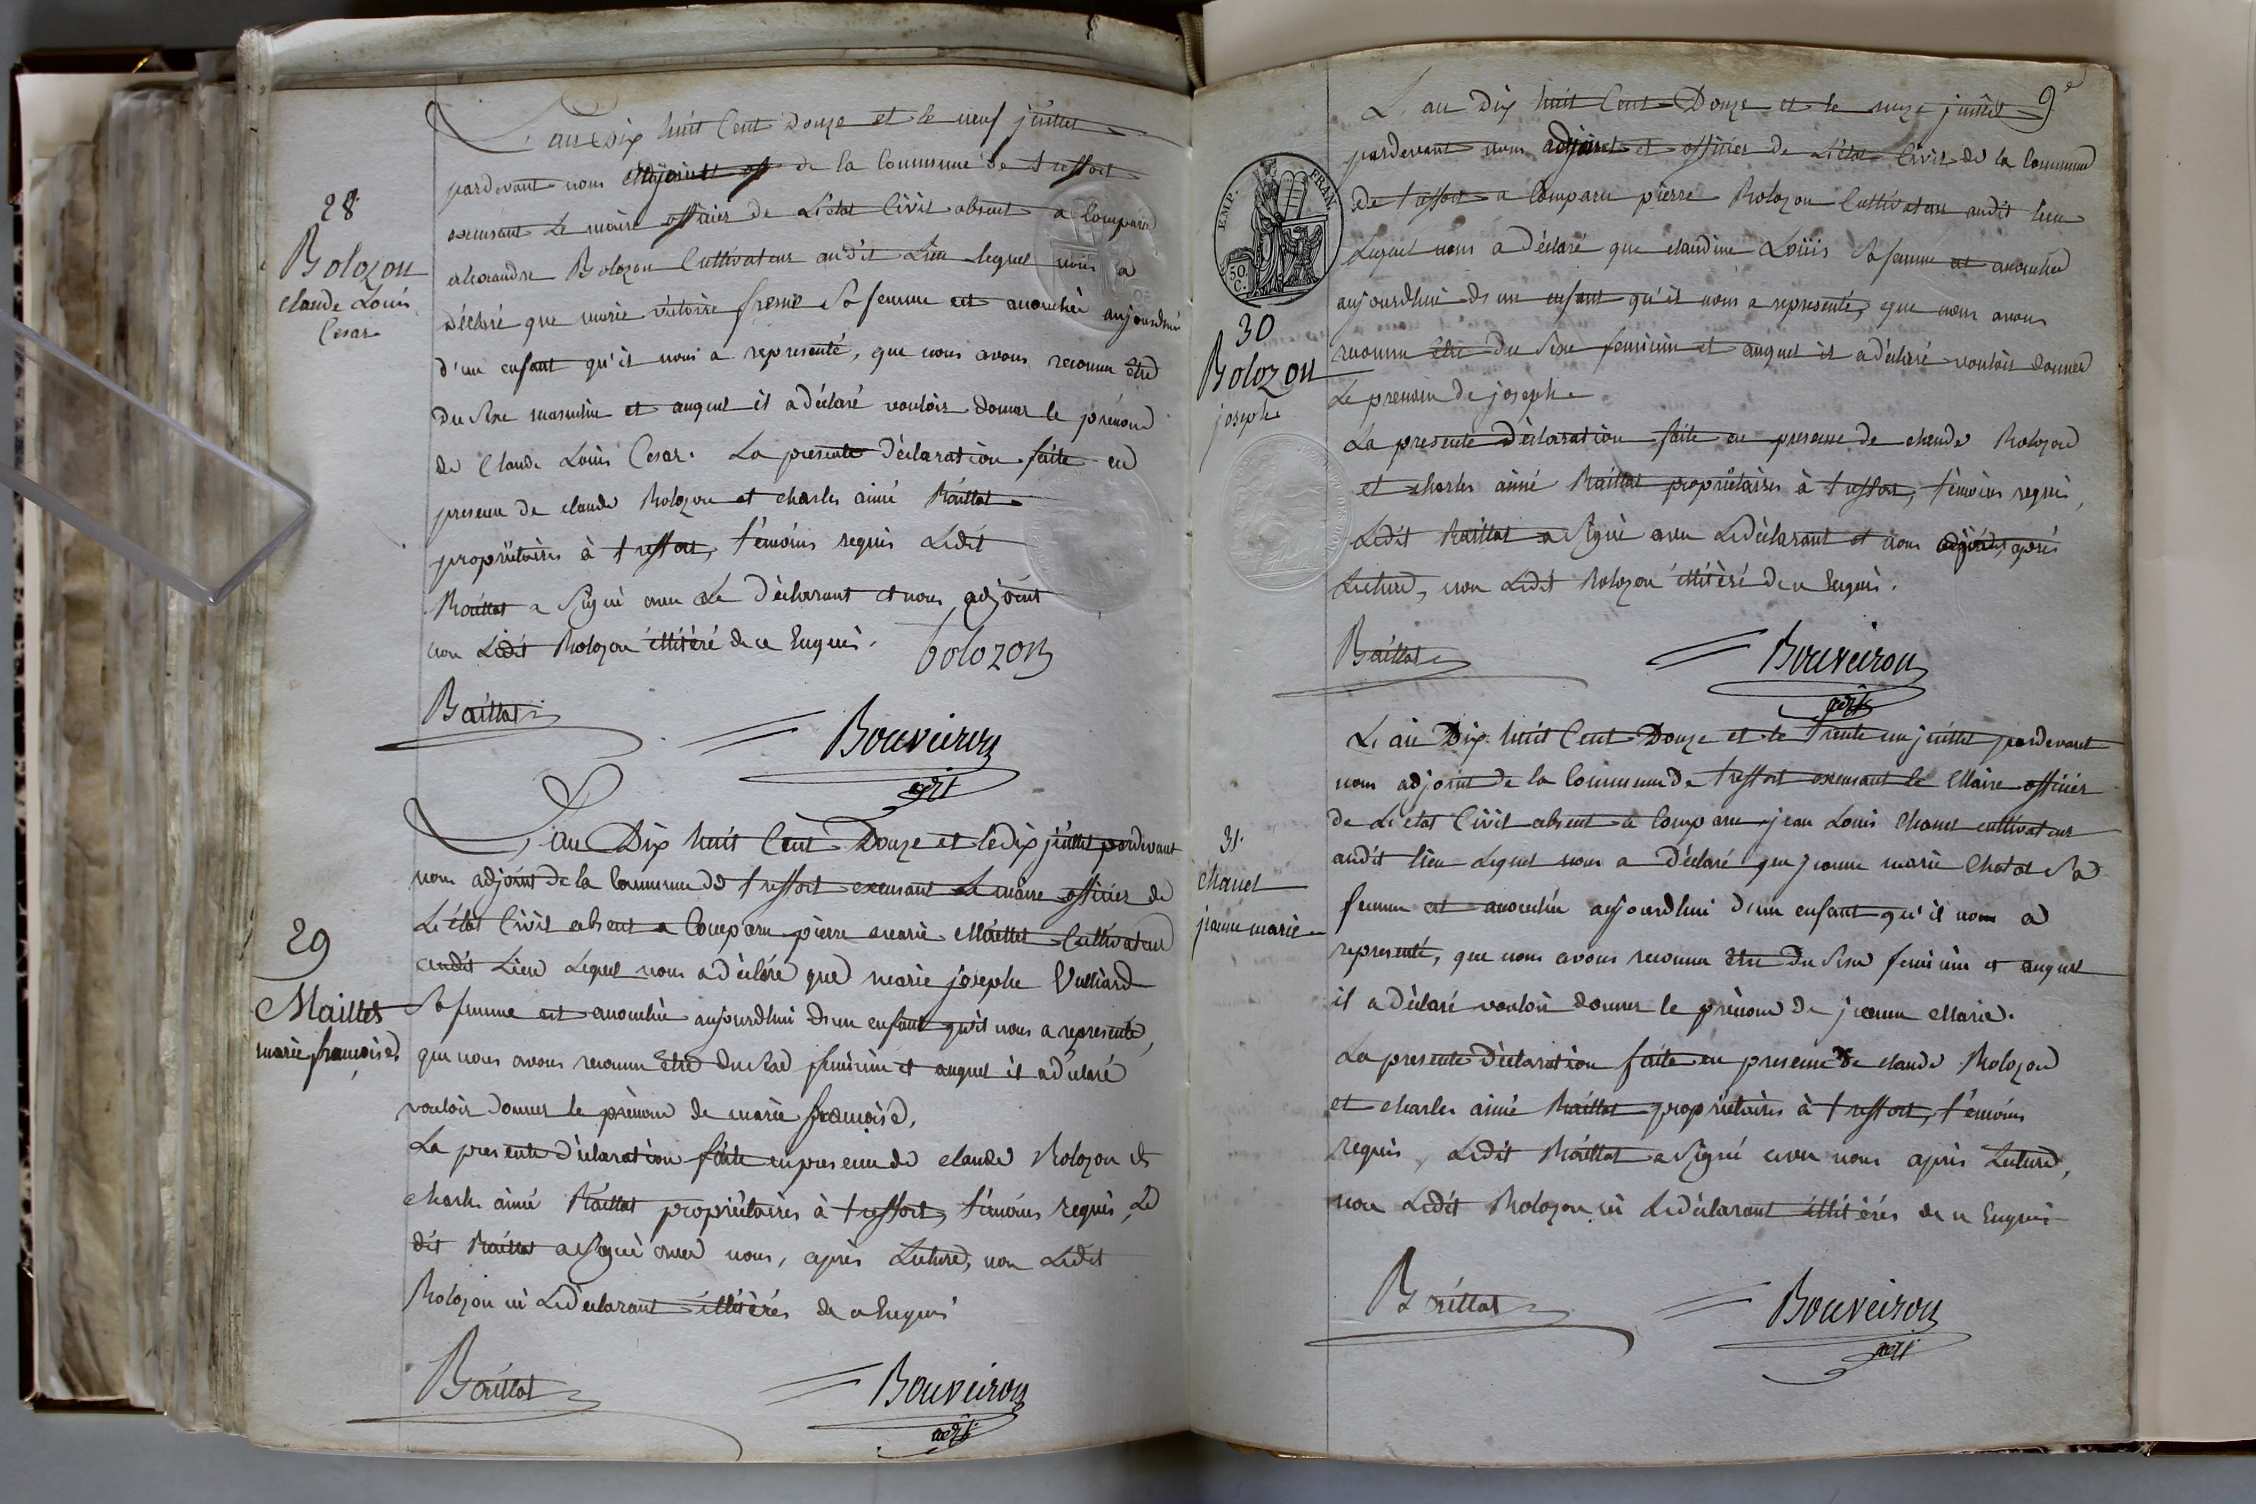 28
Bolozon
claude Louis
Cesar
L'an Dix huit Cent Douze et le neuf juillet
pardevant nous adjoint de la Commune de treffort
exersant Le maire officier de L'état Civil absent a Comparu
alexandre Bolozon Cultivateur audit Lieu lequel nous a
déclaré que marie victoire sa femme est accouchée aujourdhui
d'un enfant qu'il nous a representé, que nous avons reconnu être
du sexe masculin et auquel il a déclaré vouloir donner le prénom
de Claude Louis Cesar. La presente déclaration faite en
presence de claude Bolozon et charles aimé Baillat
propriétaires à treffort, témoins requis Ledit
Baillat a signé avec Le déclarant et nous adjoint
non Ledit Bolozon illitéré de ce Enquis.
bolozon
Baillat
Bouveiron
adjt
29
Maillet
marie françoise
L'an Dix huit Cent Douze et le dix juillet pardevant
nous adjoint de la Commune de treffort exersant Le maire officier de
L'état Civil absent a Comparu pierre marie Maillet Cultivateur
audit Lieu Lequel nous a déclaré que marie josephe Vulliard
Sa femme est accouchée aujourdhui d'un enfant qu'il nous a representé,
que nous avons reconnu être du sexe feminin et auquel il a déclaré
vouloir donner le prénom de marie françoise.
La presente déclaration faite en presence de claude Bolozon et
charles aimé Baillat propriétaires à treffort, témoins requis, Le
dit Baillat a signé avec nous, après Lecture, non Ledit
Bolozon ni Le déclarant illitérés de ce Enquis
Baillat
Bouveiron
adjt
9e
EMP. FRAN.
50 C.
30
Bolozon
josephe
L'an Dix huit Cent Douze et le onze juillet
pardevant nous adjoint et officier de L'état Civil de la Commune
de treffort a Comparu pierre Bolozon Cultivateur audit lieu
Lequel nous a déclaré que claudine Louis Sa femme est accouchée
aujourdhui d'un enfant qu'il nous a representé, que nous avons
reconnu être du sexe feminin et auquel il a déclaré vouloir donner
Le prenom de josephe
La presente déclaration faite en presence de claude Bolozon
et charles aimé Baillat propriétaires à treffort, témoins requis,
Ledit Baillat a signé avec Le déclarant et nous adjoint, après
Lecture, non Ledit Bolozon illitéré de ce Enquis.
Baillat
Bouveiron
adjt
31.
Chanel
jeanne marie
L'an Dix huit Cent Douze et le Trente un juillet pardevant
nous adjoint de la Commune de treffort exersant le Maire officier
de L'état Civil absent a Comparu jean Louis Chanel cultivateur
audit lieu Lequel nous a déclaré que jeanne marie Chatot Sa
femme est accouchée aujourdhui d'un enfant qu'il nous a
representé, que nous avons reconnu être du sexe feminin et auquel
il a déclaré vouloir donner le prénom de jeanne Marie.
La presente déclaration faite en presence de claude Bolozon
et charles aimé Baillat propriétaires à treffort, témoins
requis, Ledit Baillat a signé avec nous après Lecture,
non Ledit Bolozon ni Le déclarant illitérés de ce Enquis
Baillat
Bouveiron
adjt